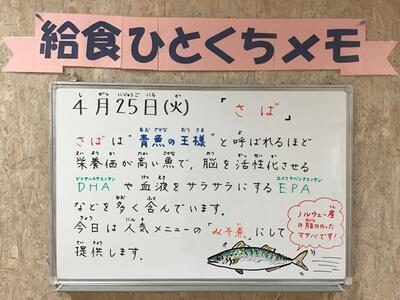 給食ひとくちメモ
4月25日(火) 「さば」
さばは"青魚の王様"と呼ばれるほど
栄養価が高い魚で、脳を活性化させる
DHAや血液をサラサラにするEPA
などを多く含んでいます。
今日は人気メニューの「みそ煮」にして
提供します。
ノルウェー産
の脂ののった
マサバです!